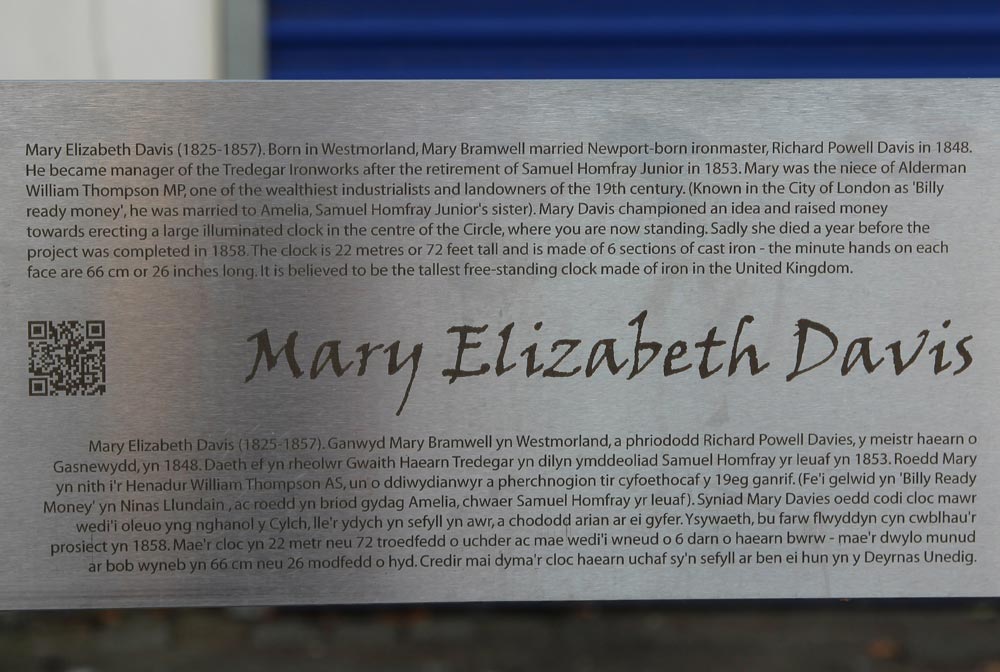 Mary Elizabeth Davis (1825-1857). Born in Westmorland, Mary Bramwell married Newport-born ironmaster, Richard Powell Davis in 1848.
He became manager of the Tredegar Ironworks after the retirement of Samuel Homfray Junior in 1853. Mary was the niece of Alderman
William Thompson MP, one of the wealthiest industrialists and landowners of the 19th century. (Known in the City of London as 'Billy
ready money', he was married to Amelia, Samuel Homfray Junior's sister). Mary Davis championed an idea and raised money
towards erecting a large illuminated clock in the centre of the Circle, where you are now standing. Sadly she died a year before the
project was completed in 1858. The clock is 22 metres or 72 feet tall and is made of 6 sections of cast iron - the minute hands on each
face are 66 cm or 26 inches long. It is believed to be the tallest free-standing clock made of iron in the United Kingdom.
Mary Elizabeth Davis
Mary Elizabeth Davis (1825-1857). Ganwyd Mary Bramwell yn Westmorland, a phriododd Richard Powell Davies, y meistr haearn o
Gasnewydd, yn 1848. Daeth ef yn rheolwr Gwaith Haearn Tredegar yn dilyn ymddeoliad Samuel Homfray yr Ieuaf yn 1853. Roedd Mary
yn nith i'r Henadur William Thompson AS, un o ddiwydianwyr a pherchnogion tir cyfoethocaf y 19eg ganrif. (Fe'i gelwid yn 'Billy Ready
Money' yn Ninas Llundain , ac roedd yn briod gydag Amelia, chwaer Samuel Homfray yr Ieuaf). Syniad Mary Davies oedd codi cloc mawr
wedi'i oleuo yng nghanol y Cylch, lle'r ydych yn sefyll yn awr, a chododd arian ar ei gyfer. Ysywaeth, bu farw flwyddyn cyn cwblhau'r
prosiect yn 1858. Mae'r cloc yn 22 metr neu 72 troedfedd o uchder ac mae wedi'i wneud o 6 darn o haearn bwrw - mae'r dwylo munud
ar bob wyneb yn 66 cm neu 26 modfedd o hyd. Credir mai dyma'r cloc haearn uchaf sy'n sefyll ar ben ei hun yn y Deyrnas Unedig.